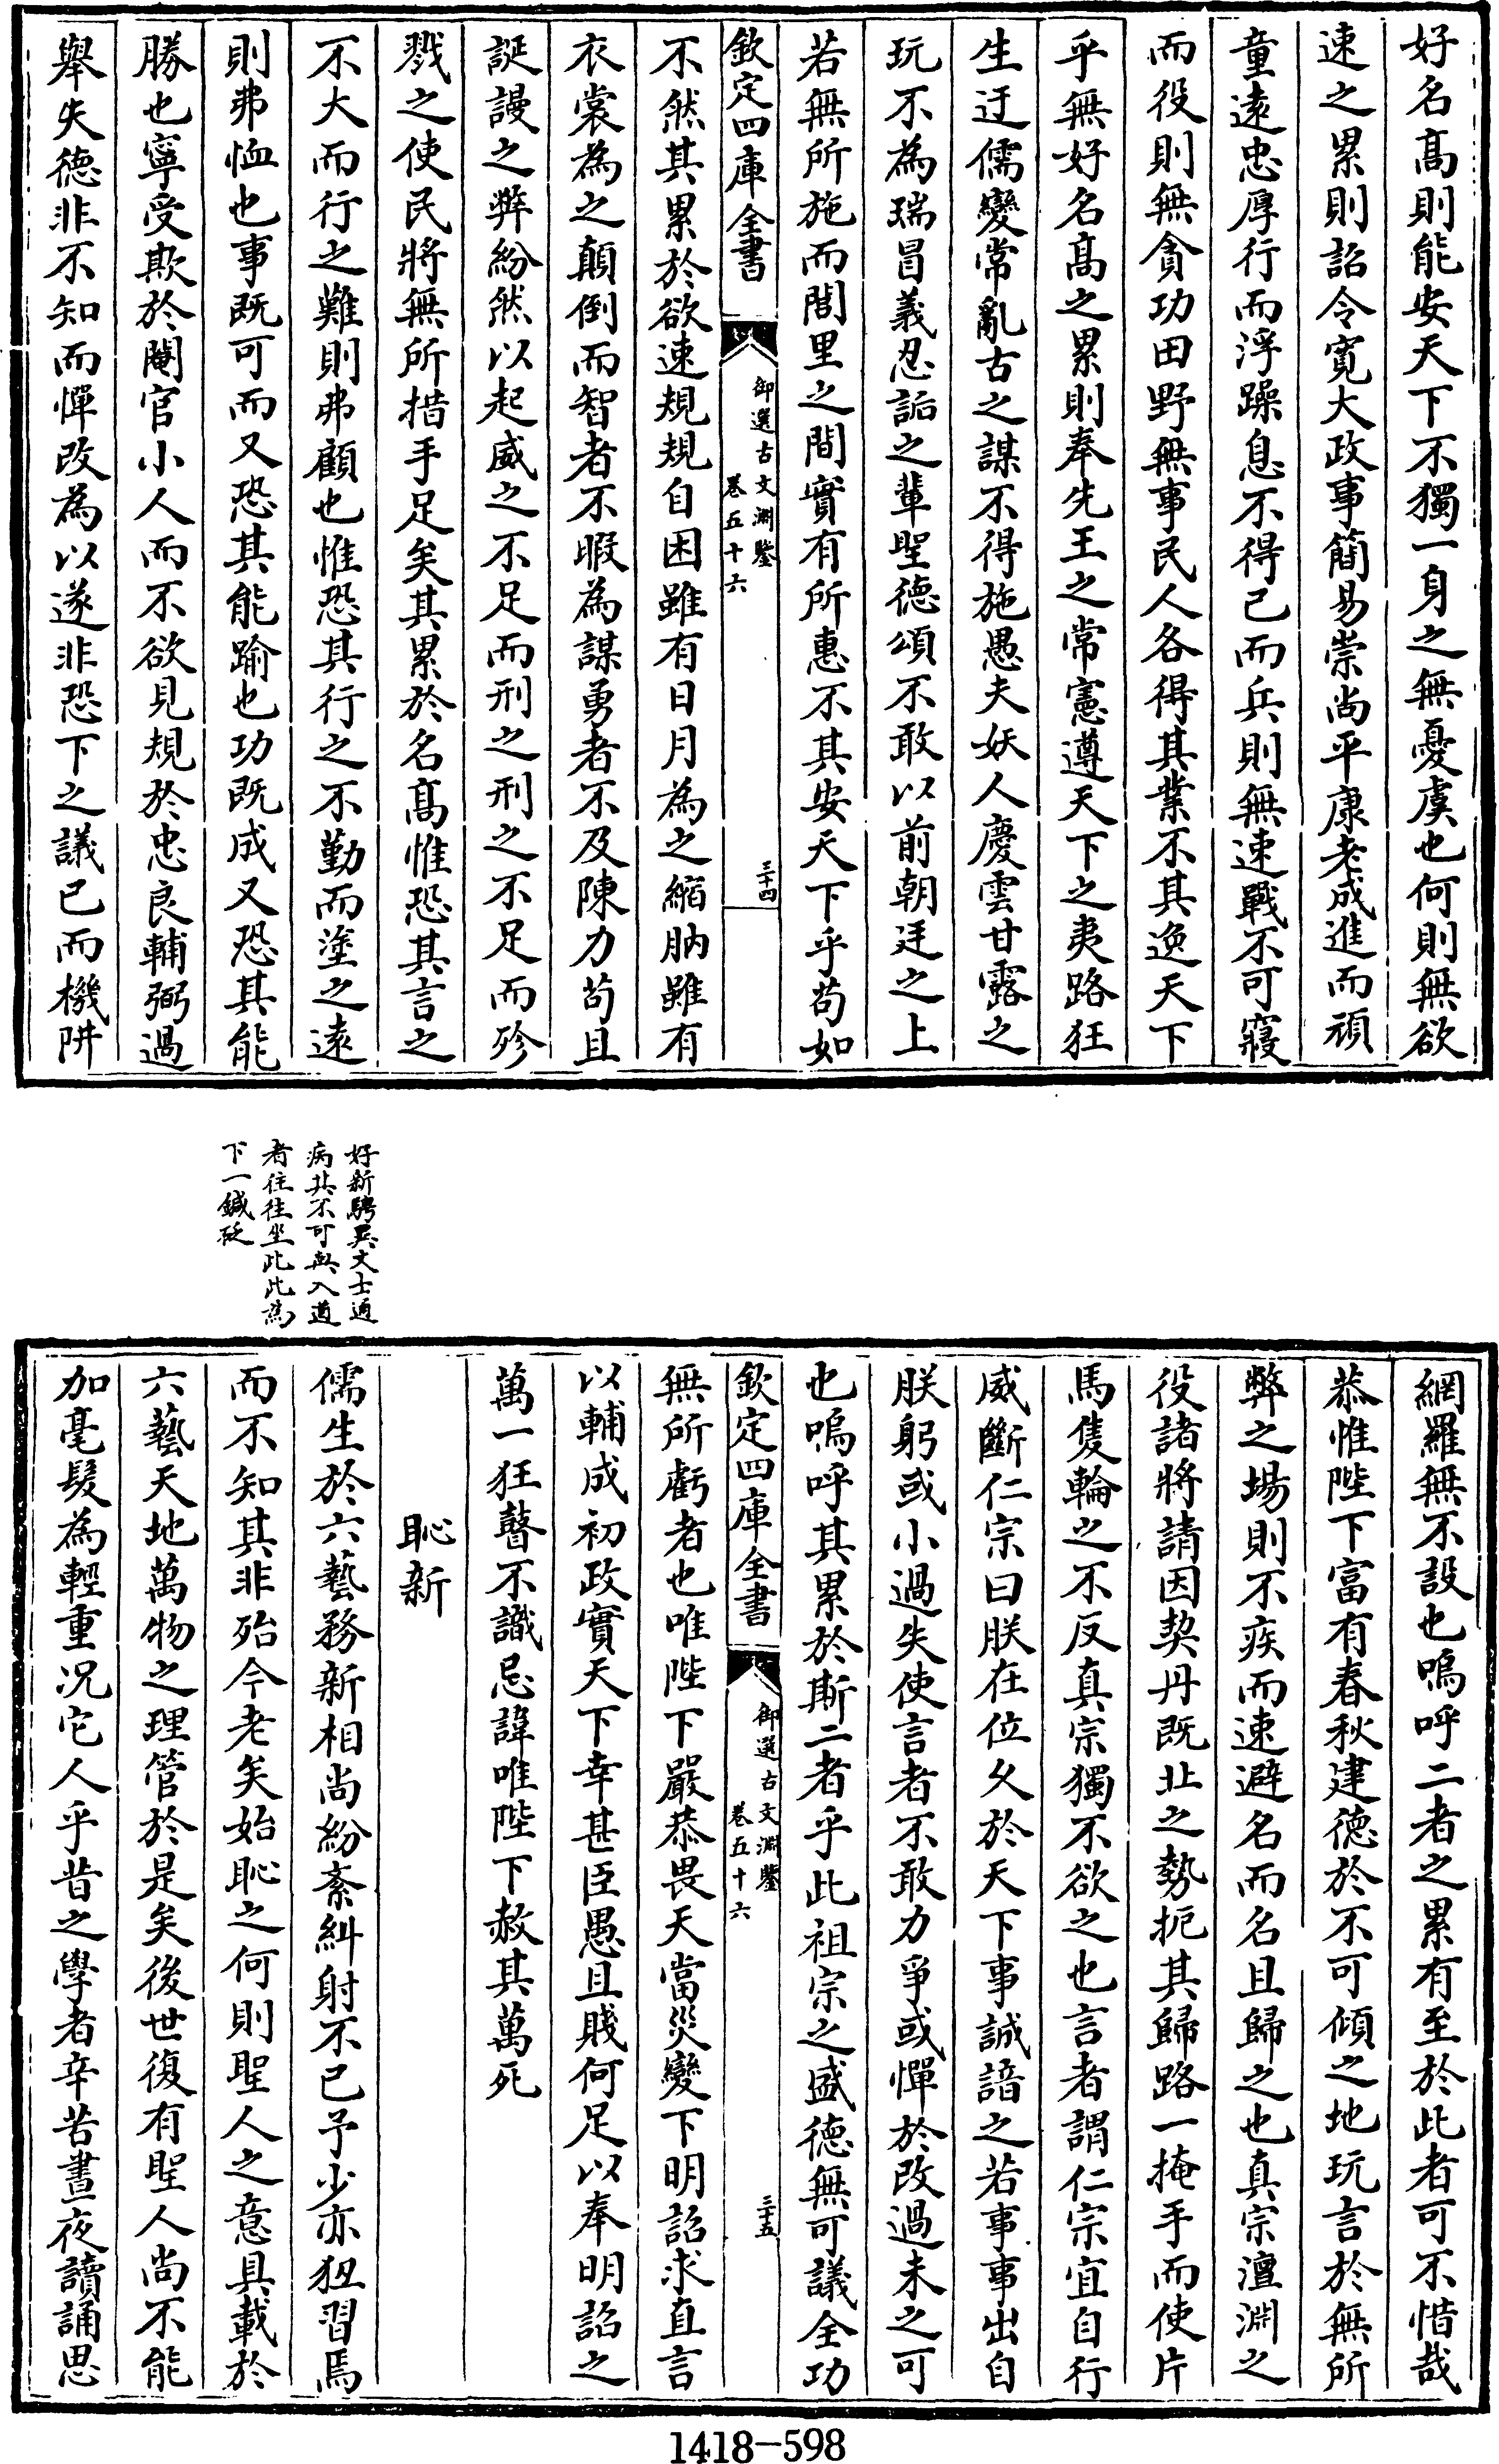 好名髙則能安天下不獨一身之無憂虞也何則無欲
速之累則詔令寛大政事簡易崇尚平康老成進而頑
童逺忠厚行而浮躁息不得已而兵則無速戰不可寢
而役則無貪功田野無事民人各得其業不其逸天下
乎無好名髙之累則奉先王之常憲遵天下之夷路狂
生迂儒變常亂古之謀不得施愚夫妖人慶雲甘露之
玩不為瑞冒義忍詬之輩聖徳頌不敢以前朝廷之上
若無所施而閭里之間實有所惠不其安天下乎茍如
欽定四庫全書
御選古文淵鑒
卷五十六
三十四
不然其累於欲速規規自困雖有日月為之縮朒雖有
衣裳為之顛倒而智者不暇為謀勇者不及陳力茍且
誕謾之弊紛然以起威之不足而刑之刑之不足而殄
戮之使民將無所措手足矣其累於名髙惟恐其言之
不大而行之難則弗顧也惟恐其行之不勤而塗之逺
則弗恤也事既可而又恐其能踰也功既成又恐其能
勝也寧受欺於閹官小人而不欲見規於忠良輔弼過
舉失徳非不知而憚改為以遂非恐下之議已而機阱
好新騁異文士通
病其不可與入道
者往往坐此此為
下一鍼砭
網羅無不設也嗚呼二者之累有至於此者可不惜哉
恭惟陛下富有春秋建德於不可傾之地玩言於無所
弊之場則不疾而速避名而名且歸之也真宗澶淵之
役諸將請因契丹既北之勢扼其歸路一掩手而使片
馬隻輪之不反真宗獨不欲之也言者謂仁宗宜自行
威斷仁宗曰朕在位久於天下事誠諳之若事事出自
朕躬或小過失使言者不敢力爭或憚於改過未之可
也嗚呼其累於斯二者乎此祖宗之盛德無可議全功
欽定四庫全書
御選古文淵鑒
卷五十六
三十五
無所虧者也唯陛下嚴恭畏天當災變下明詔求直言
以輔成初政實天下幸甚臣愚且賤何足以奉明詔之
萬一狂瞽不識忌諱唯陛下赦其萬死
恥新
儒生於六藝務新相尚紛紊糾射不已予少亦狃習焉
而不知其非殆今老矣始恥之何則聖人之意具載於
六藝天地萬物之理管於是矣後世復有聖人尚不能
加毫髮為輕重况它人乎昔之學者辛苦晝夜讀誦思
1418-598